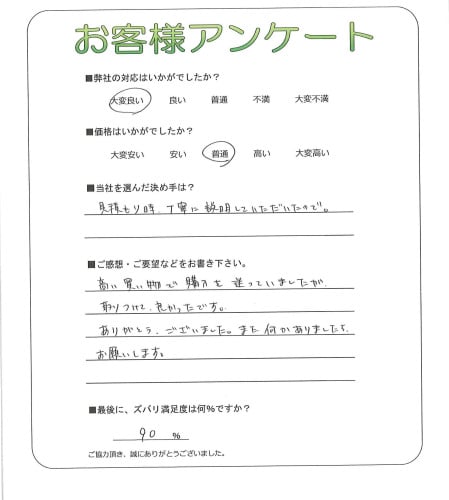 お客様アンケート
■弊社の対応はいかがでしたか?
大変良い 良い 普通 不満 大変不満
■価格はいかがでしたか?
大変安い 安い 普通 高い 大変高い
■当社を選んだ決め手は?
見積もり時、丁寧に説明していただいたので。
■ご感想・ご要望などをお書き下さい。
高い買い物で購入も迷っていましたが
取りつけて、良かったです。
ありがとう、ございました。また何かありましたら
お願いします。
■最後に、ズバリ満足度は何%ですか?
90 %
ご協力頂き、誠にありがとうございました。